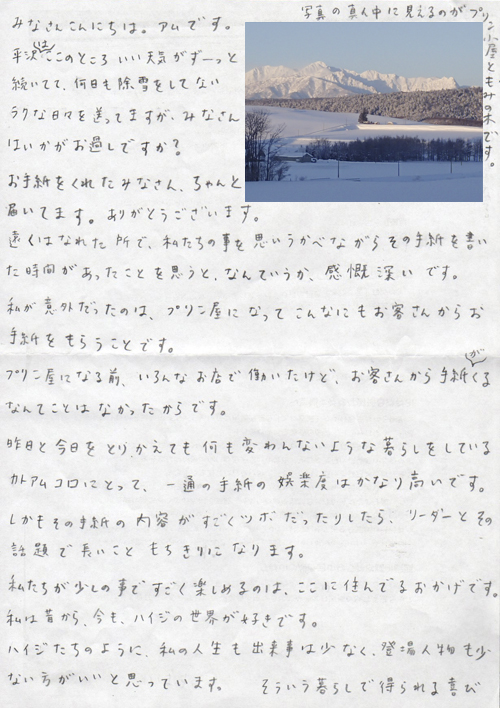 写真の真ん中に見えるのがプリン小屋ともみの木です。
みなさんこんにちは。アムです。
平沢はここのところ いい天気がずーっと
続いてて、何日も除雪をしてない
ラクな日々を送ってますが、みなさん
はいかがお過しですか?
お手紙をくれたみなさん、ちゃんと
届いてます。ありがとうございます。
遠くはなれた所で、私たちの事を思いうかべながらその手紙を書い
た時間があったことを思うと、なんていうか、感慨深いです。
私が意外だったのは、プリン屋になってこんなにもお客さんからお
手紙をもらうことです。
プリン屋になる前、いろんなお店で働いたけど、お客さんから手紙がくる
なんてことはなかったからです。
昨日と今日をとりかえても何も変わんないような暮らしをしている
カトアムコロにとって、一通の手紙の娯楽度はかなり高いです。
しかもその手紙の内容がすごくツボだったりしたら、リーダーとその
話題で長いこともちきりになります。
私たちが少しの事ですごく楽しめるのは、ここに住んでるおかげです。
私は昔から、今も、ハイジの世界が好きです。
ハイジたちのように、私の人生も出来事は少なく、登場人物も少
ない方がいいと思っています。 そういう暮らしで得られる喜び